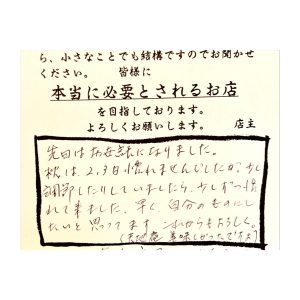 ら、小さなことでも結構ですのでお聞かせ
ください。　　皆様に
本当に必要とされるお店
を目指しております。
よろしくお願いします。　　店主
先日はお世話になりました。
枕は、2、3日慣れませんでしたが、少し
調節したりしていましたら、少しずつ慣
れて来ました。早く、自分のものにし
たいと思ってます。これからもよろしく。
美味しかったですよ